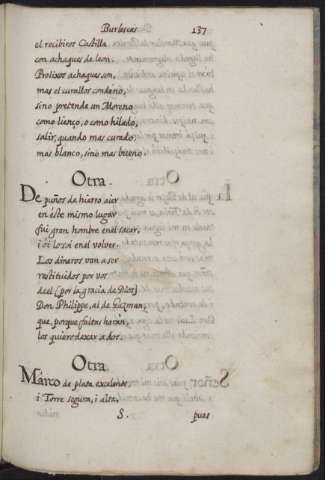 Burlescas 137
el recibiros Castilla
con achaques de leon.
Prolixos achaques son,
mas el curallos condeno,
sino pretende un Moreno
como lienço, o como hilado,
salir, quando mas curado,
mas blanco, sino mas bueno.
Otra.
De puños de hierro aier
en este mismo lugar
fui gran hombre en el sacar,
i oi lo soi en el volver.
Los dineros van a ser
restituidos por vos
de el (por la gracia de Dios)
Don Philippe, al de Guzman,
que, porque faltas haran,
los quiere dexar a dos.
Otra.
Marco de plata excelente,
i Torre segura, i alta,
S. pues